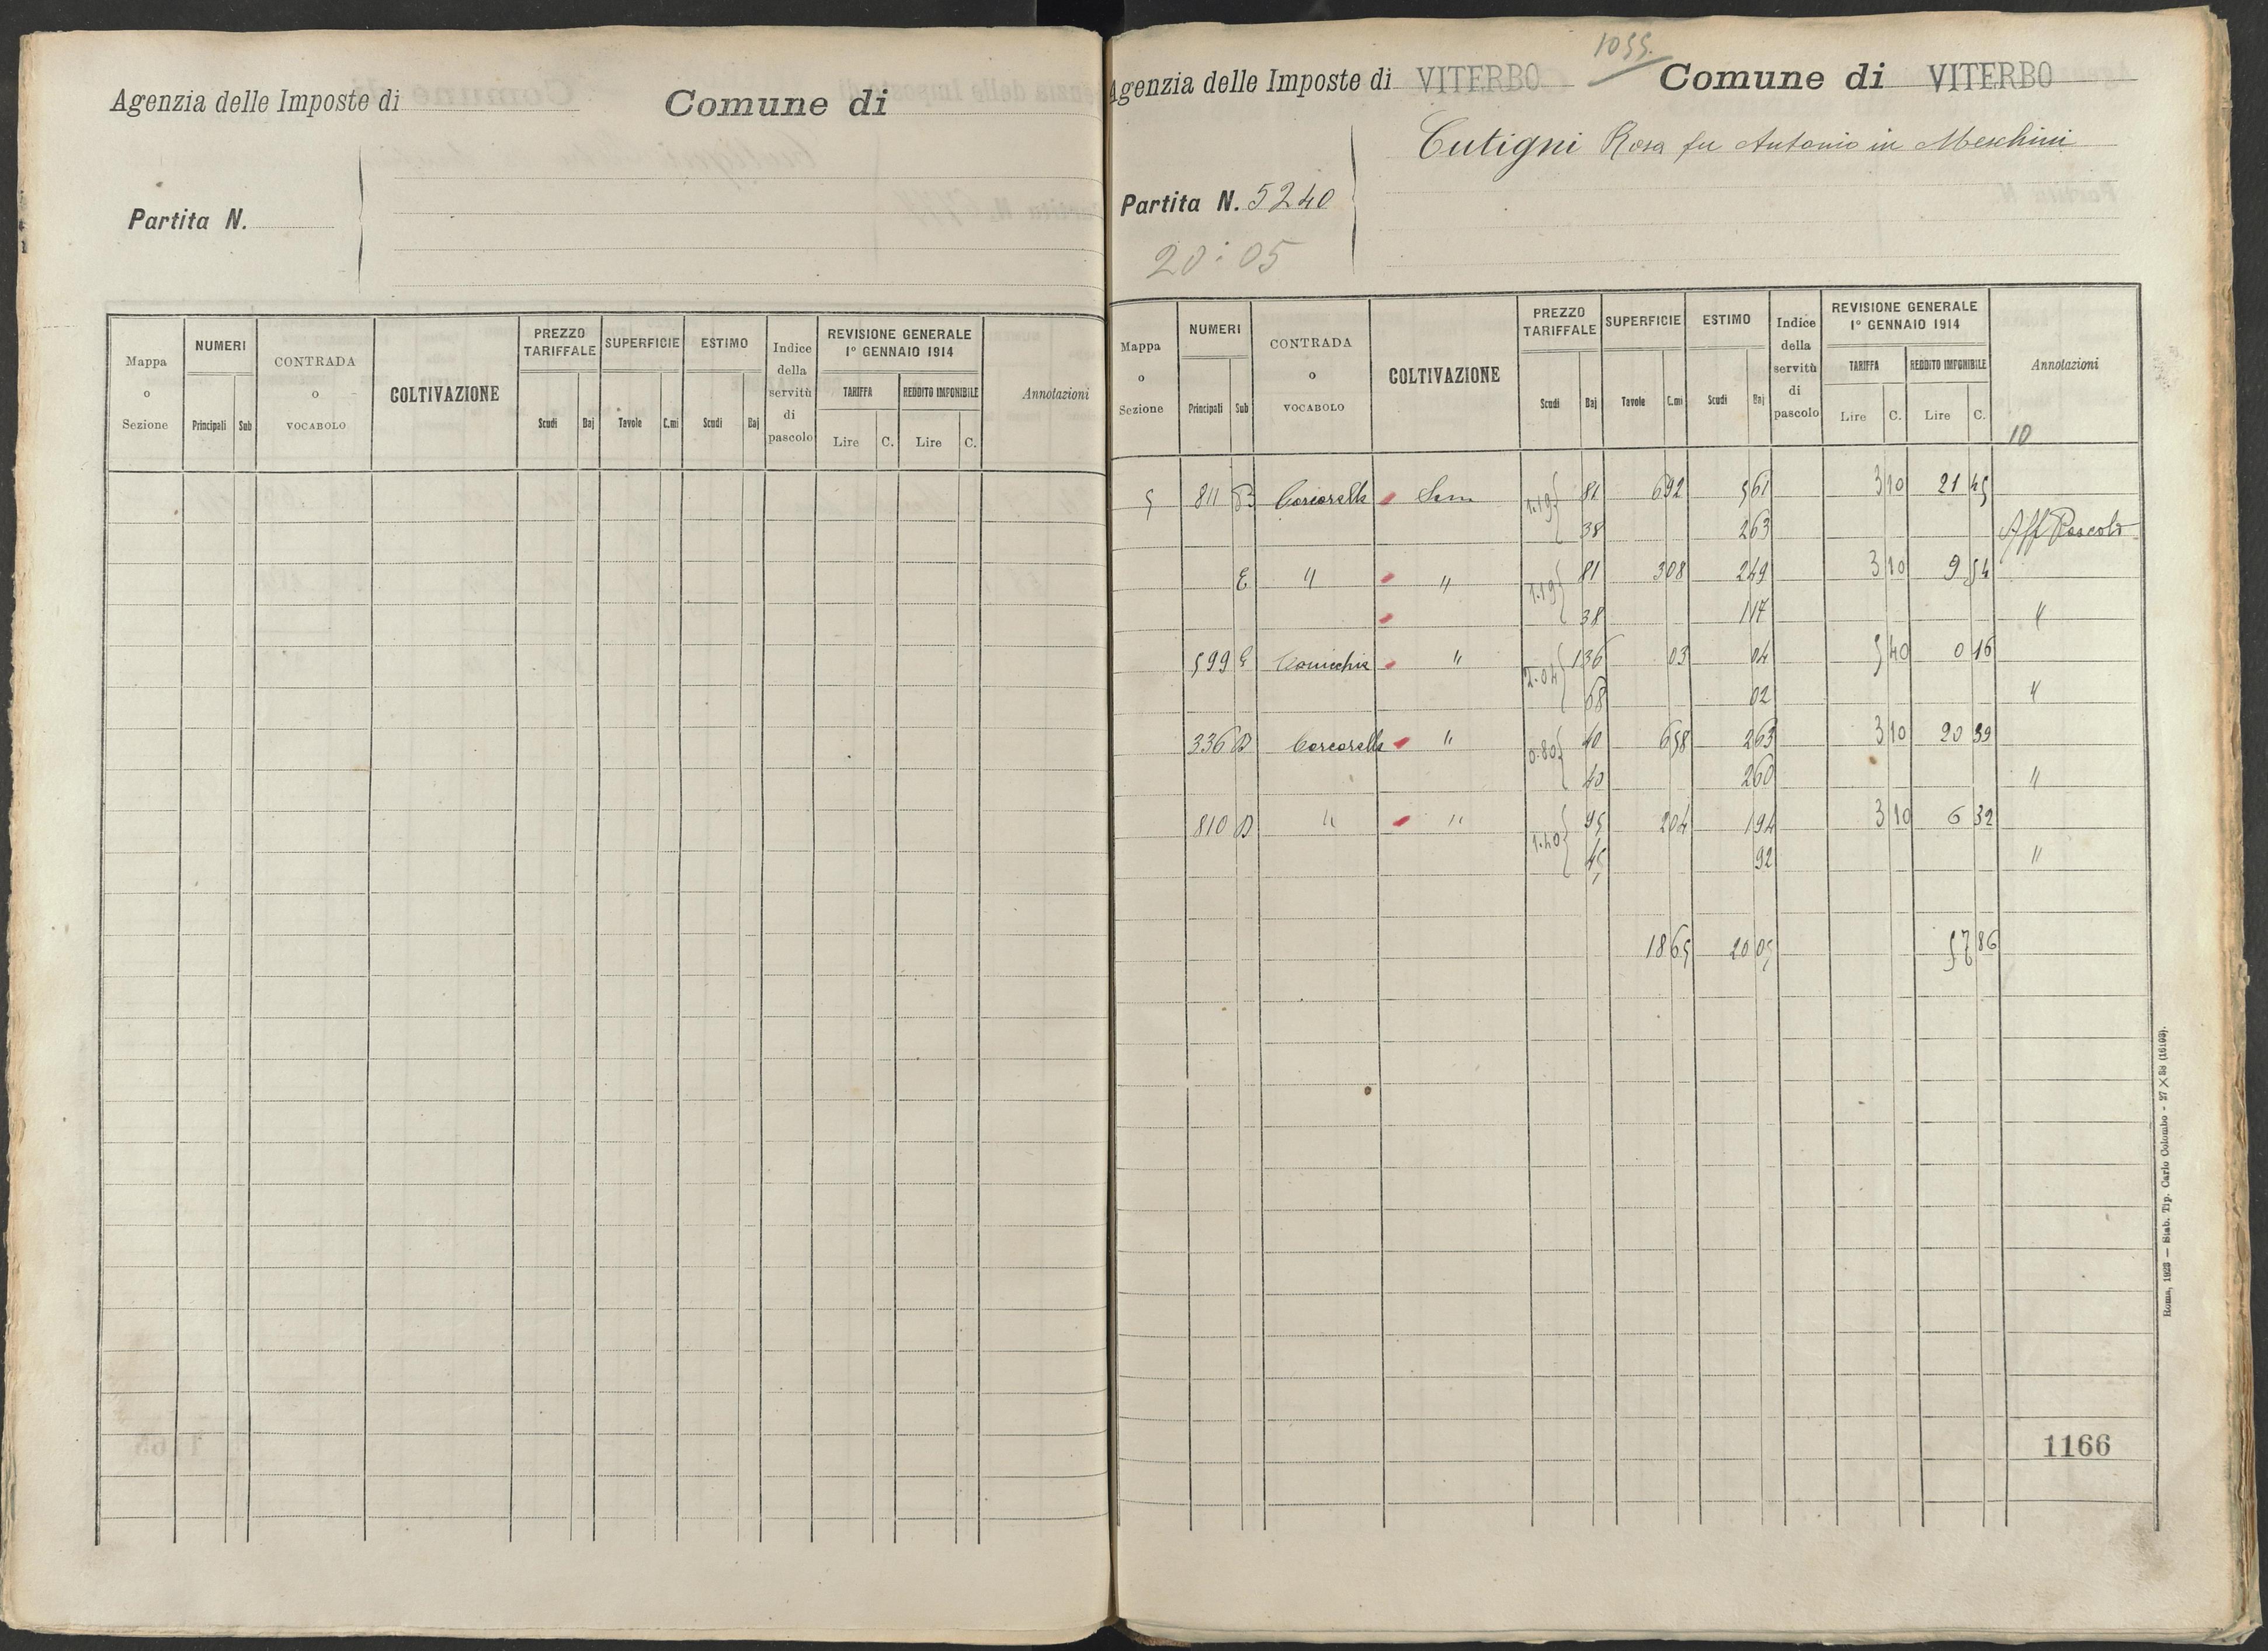 Agenzia delle Imposte di
Comune di
Partita N.
Mappa o Sezione
NUMERI
Principali Sub
CONTRADA o VOCABOLO
COLTIVAZIONE
PREZZO TARIFFALE
Scudi Baj
SUPERFICIE
Tavole C.mi
ESTIMO
Scudi Baj
Indice della servitù di pascolo
REVISIONE GENERALE 1° GENNAIO 1914
TARIFFA
Lire C.
REDDITO IMPONIBILE
Lire C.
Annotazioni
1055.
Agenzia delle Imposte di VITERBO
Comune di VITERBO
Cutigni Rosa fu Antonio in Meschini
Partita N. 5240
20:05
Mappa o Sezione
NUMERI
Principali Sub
CONTRADA o VOCABOLO
COLTIVAZIONE
PREZZO TARIFFALE
Scudi Baj
SUPERFICIE
Tavole C.mi
ESTIMO
Scudi Baj
Indice della servitù di pascolo
REVISIONE GENERALE 1° GENNAIO 1914
TARIFFA
Lire C.
REDDITO IMPONIBILE
Lire C.
Annotazioni
10
5 811 B Sem 1.19 81 6 92 5 61 3 10 21 45
38 2 63 Aff Pascolo
E " " 1.19 81 3 08 2 49 3 10 9 54
38 1 17 "
599 " 2.04 1 36 03 04 5 40 0 16
68 02 "
336 D " 0.80 40 6 58 2 63 3 10 20 39
40 2 60 "
810 D " " 1.40 95 2 04 1 94 3 10 6 32
45 92 "
18 65 20 05 57 86
1166
Roma, 1923 — Stab. Tip. Carlo Colombo - 27 × 38 (16193).